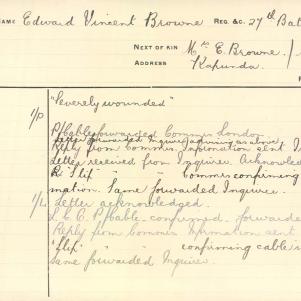 NAME Edward Vincent Browne REG. &C. 27th Bat
NEXT OF KIN Mrs E. Browne.
ADDRESS Kapunda.
"Severely wounded"
P/cable forwarded Commrs London.
Letter forwarded Inquirer advising as above.
Reply from Commrs Information sent I
Letter received from Inquirer. Acknowled
R "slip" " " Commrs confirming
mation. Same forwarded Inquirer.
Letter acknowledged.
P/cable confirmed. forwarde
Reply from Commrs Information sent
"slip" " " confirming cable
Same forwarded Inquirer.